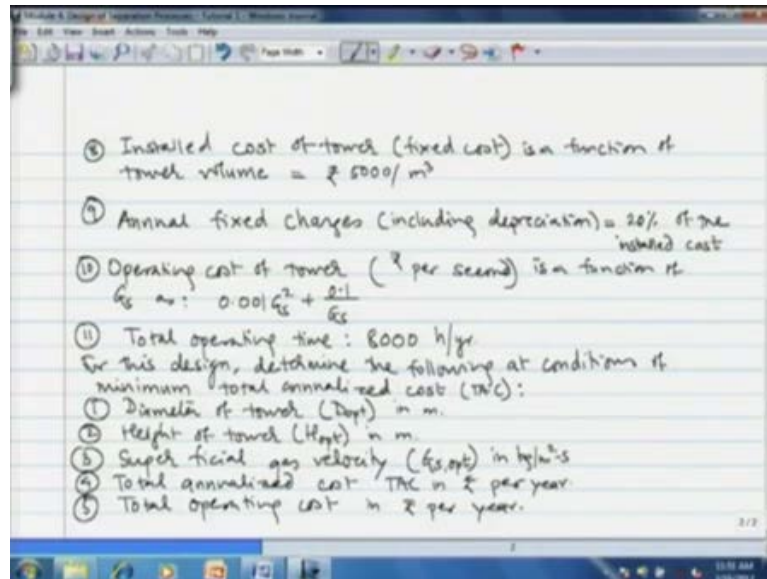 Module 6 Design of Separation Processes - Tutorial 1 - Windows Journal
File Edit View Insert Actions Tools Help
Page Width
⑧ Installed cost of tower (fixed cost) is a function of
tower volume = ₹ 5000/m³
⑨ Annual fixed charges (including depreciation) = 20% of the
installed cost
⑩ Operating cost of tower (₹ per second) is a function of
Gs as: 0.001 Gs² + 0.1/Gs
⑪ Total operating time: 8000 h/yr
For this design, determine the following at conditions of
minimum total annualized cost (TAC):
① Diameter of tower (Dopt) in m.
② Height of tower (Hopt) in m.
③ Superficial gas velocity (Gs,opt) in kg/m²·s
④ Total annualized cost TAC in ₹ per year.
⑤ Total operating cost in ₹ per year.
2/2
2
11:51 AM